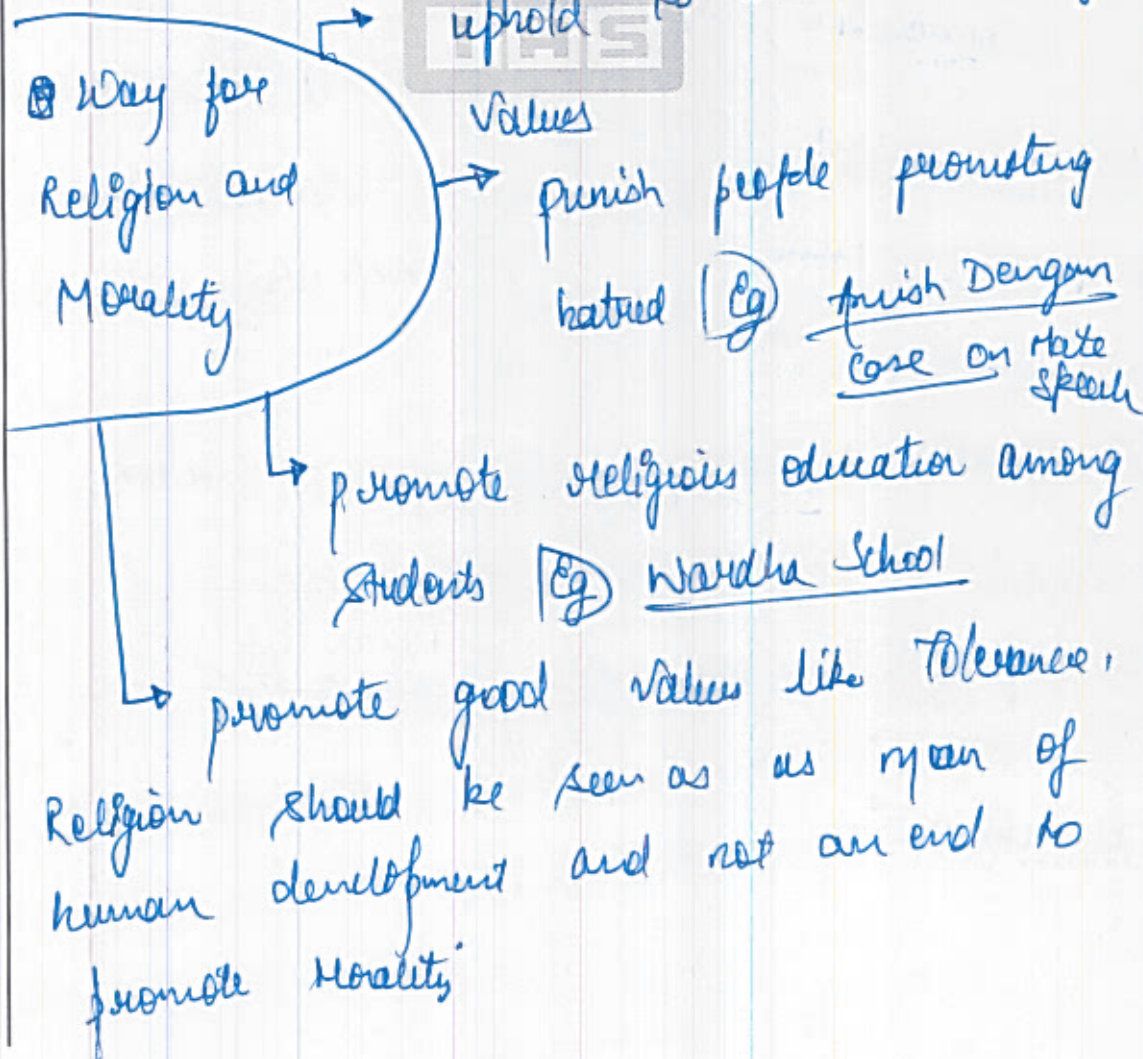 uphold
IAS
Values
Way for
Religion and
Morality
punish people promoting
hatred Eg Amish Devgan
Case on Hate
Speech
promote religious education among
Students Eg Wardha School
promote good values like Tolerance.
Religion should be seen as as mean of
human development and not an end to
promote Morality